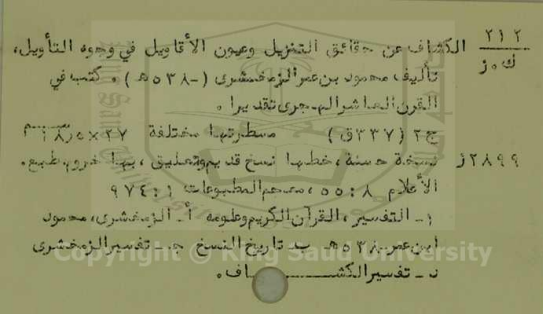 ٢١٢ الكشاف عن حقائق التنزيل وعيون الأقاويل في وجوه التأويل،
ك ٠ ز تأليف محمود بن عمر الزمخشرى ( -٥٣٨هـ ) ٠ كتب في
القرن العاشر الهجرى تقديرا ٠
ج٢ (٣٣٧ق) مسطرتها مختلفة ٢٧×١٨٫٥سم
٢٨٩٩ز نسخة حسنة، خطها نسخ قديم وتعليق، بها خروم، طبع٠
الأعلام ٨ : ٥٥، معجم المطبوعات ١ : ٩٧٤
١ـ التفسير، القرآن الكريم وعلومه أ ـ الزمخشرى، محمود
ابن عمر ـ ٥٣٨هـ ب ـ تاريخ النسخ جـ ـ تفسير الزمخشرى
د ـ تفسير الكشـــــاف ٠
Copyright © King Saud University